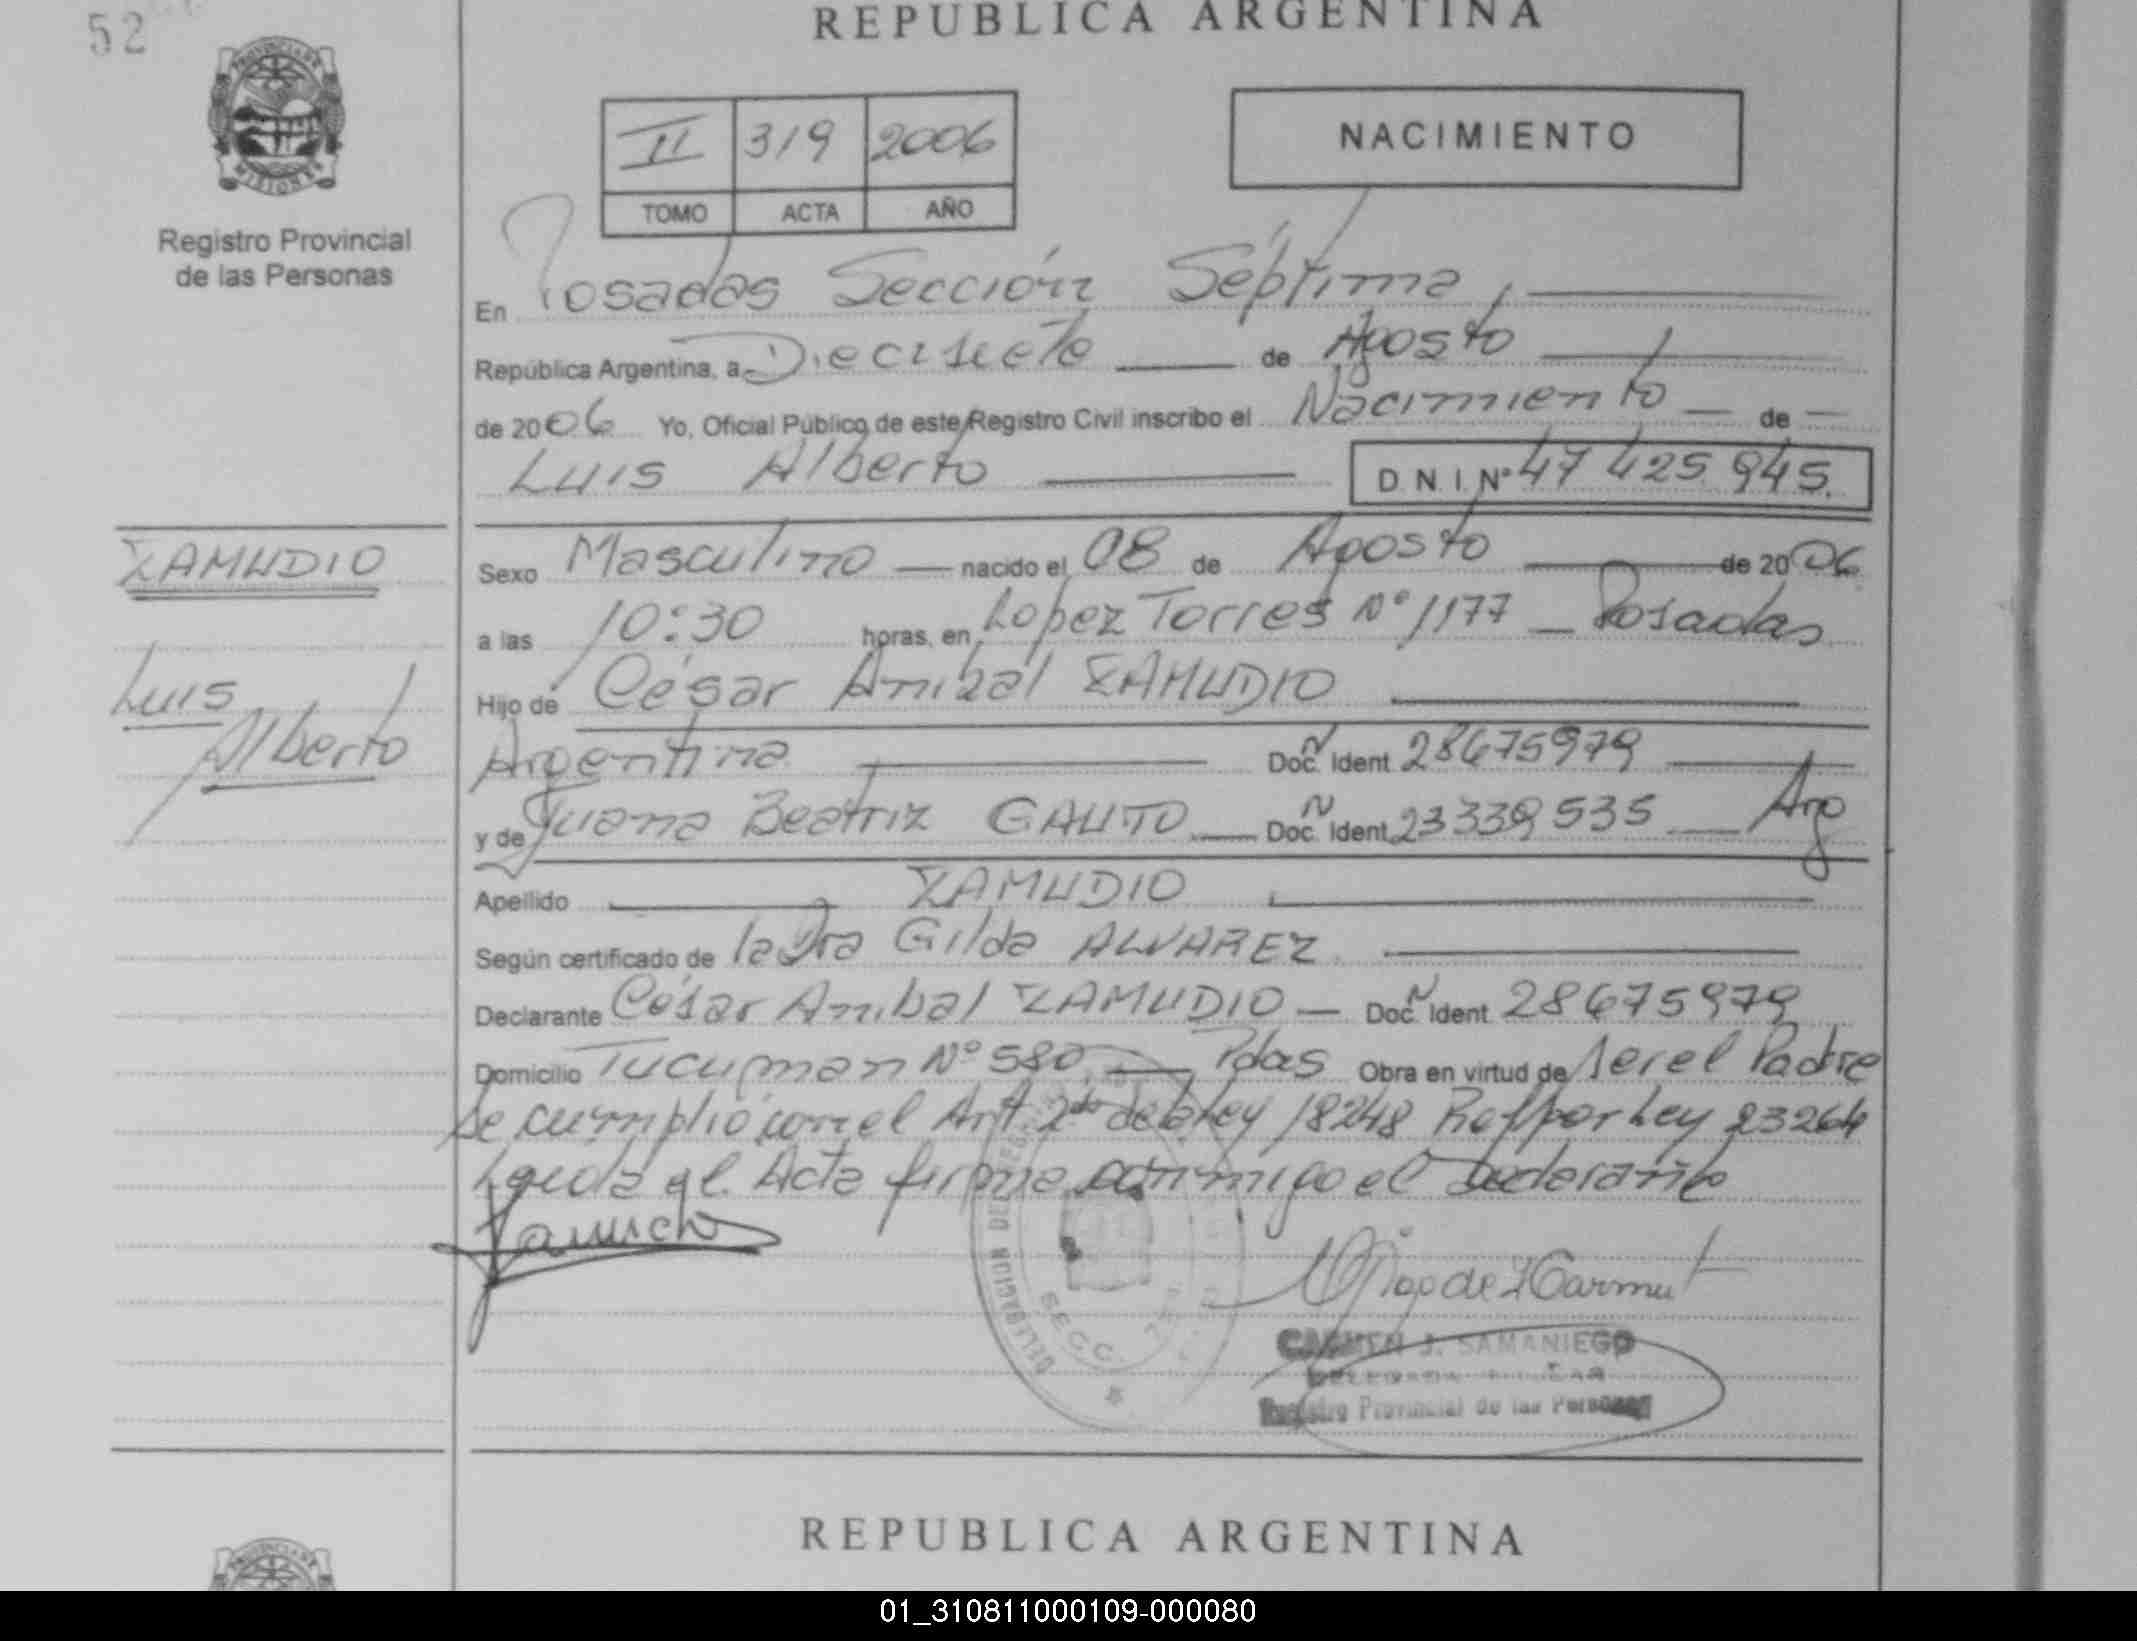 52
REPUBLICA ARGENTINA
PROVINCIA DE
MISIONES
Registro Provincial
de las Personas
II 319 2006
TOMO ACTA AÑO
NACIMIENTO
En Posadas Sección Séptima,
República Argentina, a Diecisiete de Agosto
de 2006 Yo, Oficial Público de este Registro Civil inscribo el Nacimiento de
Luis Alberto D.N.I. Nº 47 425 945.
ZAMUDIO
Luis
Alberto
Sexo Masculino nacido el 08 de Agosto de 2006
a las 10:30 horas, en Lopez Torres Nº 1177 _ Posadas
Hijo de César Anibal ZAMUDIO
Argentina Doc. Ident. 28675979
y de Juana Beatriz GAUTO Doc. Ident. 23339535 Arg
Apellido ZAMUDIO
Según certificado de la Dra Gilda ALVAREZ
Declarante César Anibal ZAMUDIO Doc. Ident. 28675979
Domicilio Tucuman Nº 580 Pdas Obra en virtud de ser el Padre
Se cumplió con el Art 2do de la Ley 18248 Ref por Ley 23264
Leida el Acta firma conmigo el Declarante
SECC. 7
CARMEN J. SAMANIEGO
Registro Provincial de las Personas
REPUBLICA ARGENTINA
01_310811000109-000080